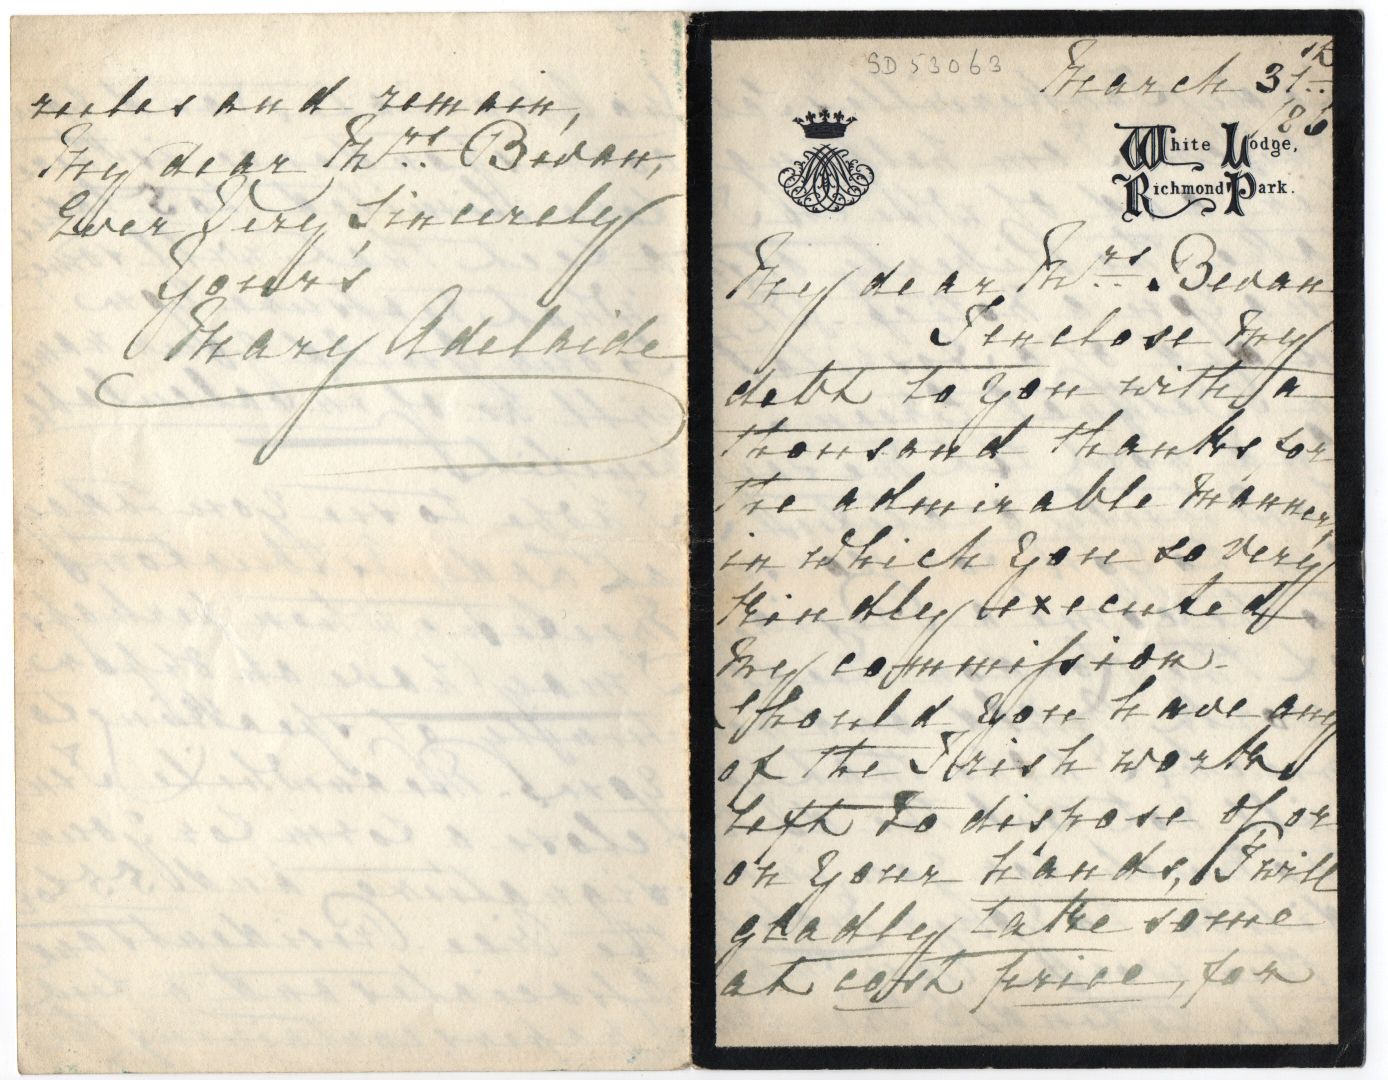 SD 53063
March 31st
86
White Lodge,
Richmond Park.
My dear Mrs. Bevan
I enclose my
debt to you with a
thousand thanks for
the admirable manner,
in which you so very
kindly executed
my commission.
Should you have any
of the Irish work
left to dispose of or
on your hands, I will
gladly take some
at cost price, for
rules and remain,
My dear Mrs. Bevan,
Ever Very Sincerely
Your's
Mary Adelaide